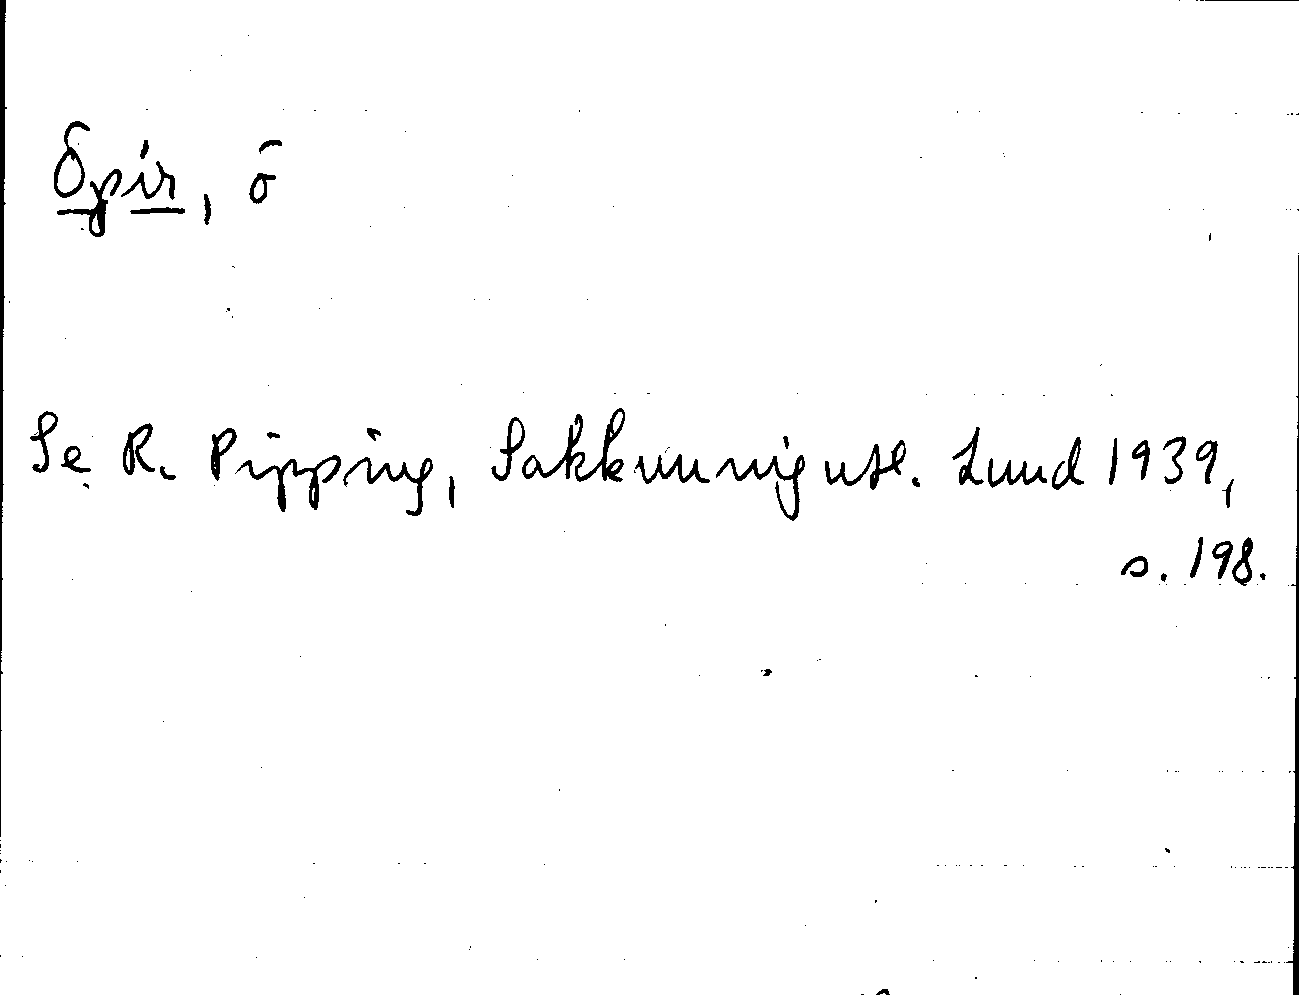 Öpir, ö
Se R. Pipping, Sakkunnigutl. Lund 1939,
s. 198.